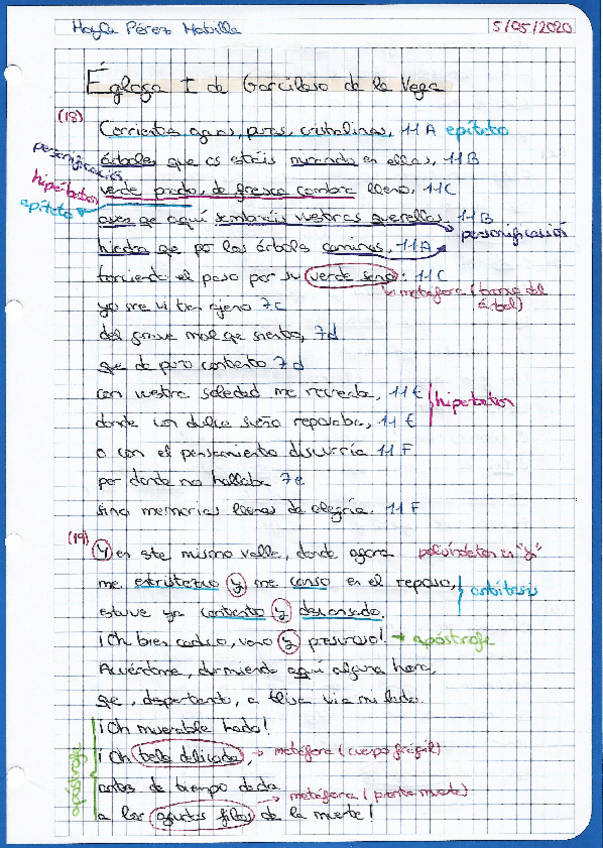 Mayla Pérez Mabilla 5/05/2020
Égloga I de Garcilaso de la Vega
(18)
Corrientes aguas, puras, cristalinas, 11A epíteto
árboles que os estáis mirando en ellas, 11B
personificación
hipérbaton verde prado, de fresca sombra lleno, 11C
epíteto
aves que aquí sembráis vuestras querellas, 11B
personificación
hiedra que por los árboles caminas, 11A
torciendo el paso por su verde seno: 11C
metáfora (tronco del árbol)
yo me vi tan ajeno 7c
del grave mal que siento, 7d
que de puro contento 7d
con vuestra soledad me recreaba, 11E hipérbaton
donde con dulce sueño reposaba, 11E
o con el pensamiento discurría 11F
por donde no hallaba 7e
sino memorias llenas de alegría. 11F
(19)
Y en este mismo valle, donde agora polisíndeton en "y"
me entristezco y me canso en el reposo, antítesis
estuve ya contento y descansado.
¡Oh bien caduco, vano y presuroso! → apóstrofe
Acuérdome, durmiendo aquí alguna hora,
que, despertando, a Elisa vi a mi lado.
¡Oh miserable hado!
¡Oh tela delicada, → metáfora (cuerpo frágil)
apóstrofe
antes de tiempo dada
→ metáfora (
muerte)
a los agudos filos de la muerte!